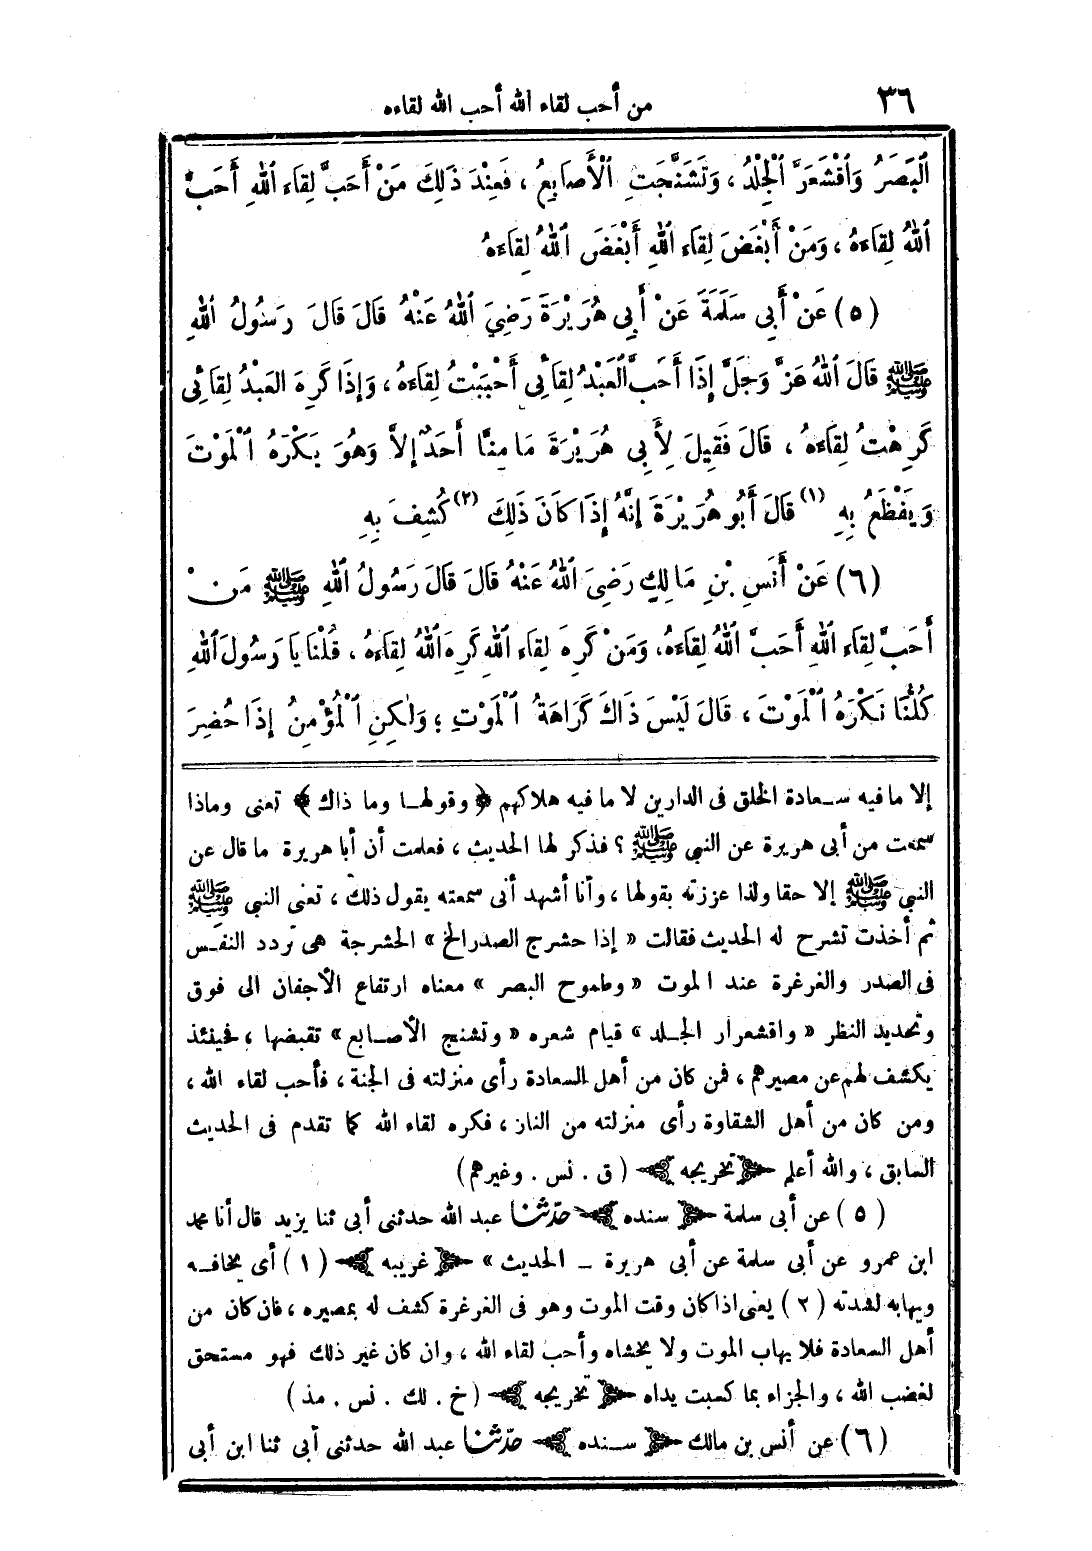 ٣٦ من أحب لقاء الله أحب الله لقاءه
ٱلْبَصَرُ وَٱقْشَعَرَّ ٱلْجِلْدُ ، وَتَشَنَّجَتِ ٱلْأَصَابِعُ ، فَعِنْدَ ذَلِكَ مَنْ أَحَبَّ لِقَاءَ ٱللهِ أَحَبَّ
ٱللهُ لِقَاءَهُ ، وَمَنْ أَبْغَضَ لِقَاءَ ٱللهِ أَبْغَضَ ٱللهُ لِقَاءَهُ
(٥) عَنْ أَبِي سَلَمَةَ عَنْ أَبِي هُرَيْرَةَ رَضِيَ ٱللهُ عَنْهُ قَالَ قَالَ رَسُولُ ٱللهِ
ﷺ قَالَ ٱللهُ عَزَّ وَجَلَّ إِذَا أَحَبَّ ٱلْعَبْدُ لِقَائِي أَحْبَبْتُ لِقَاءَهُ ، وَإِذَا كَرِهَ العَبْدُ لِقَائِي
كَرِهْتُ لِقَاءَهُ ، قَالَ فَقِيلَ لِأَبِي هُرَيْرَةَ مَا مِنَّا أَحَدٌ إِلاَّ وَهُوَ يَكْرَهُ ٱلْمَوْتَ
وَيَفْظَعُ بِهِ (١) قَالَ أَبُو هُرَيْرَةَ إِنَّهُ إِذَا كَانَ ذَلِكَ (٢) كُشِفَ بِهِ
(٦) عَنْ أَنَسِ بْنِ مَالِكٍ رَضِيَ ٱللهُ عَنْهُ قَالَ قَالَ رَسُولُ ٱللهِ ﷺ مَنْ
أَحَبَّ لِقَاءَ ٱللهِ أَحَبَّ ٱللهُ لِقَاءَهُ، وَمَنْ كَرِهَ لِقَاءَ ٱللهِ كَرِهَ ٱللهُ لِقَاءَهُ ، قُلْنَا يَا رَسُولَ ٱللهِ
كُلُّنَا نَكْرَهُ ٱلْمَوْتَ ، قَالَ لَيْسَ ذَاكَ كَرَاهَةُ ٱلْمَوْتِ ؛ وَلٰكِنِ ٱلْمُؤْمِنُ إِذَا حُضِرَ
إلا ما فيه سعادة الخلق فى الدارين لا ما فيه هلاكهم ﴿ وقولها وما ذاك ﴾ تعنى وماذا
سمعت من أبى هريرة عن النبي ﷺ ؟ فذكر لها الحديث ، فعلمت أن أبا هريرة ما قال عن
النبي ﷺ إلا حقا ولذا عززته بقولها ، وأنا أشهد أنى سمعته يقول ذلك ، تعنى النبي ﷺ
ثم أخذت تشرح له الحديث فقالت « إذا حشرج الصدر الخ » الحشرجة هى تردد النفس
فى الصدر والغرغرة عند الموت « وطموح البصر » معناه ارتفاع الأجفان الى فوق
وتحديد النظر « واقشعرار الجلد » قيام شعره « وتشنج الأصابع » تقبضها ، فحينئذ
يكشف لهم عن مصيرهم ، فمن كان من أهل السعادة رأى منزلته فى الجنة ، فأحب لقاء الله ،
ومن كان من أهل الشقاوة رأى منزلته من النار ، فكره لقاء الله كما تقدم فى الحديث
السابق ، والله أعلم ﴿ تخريجه ﴾ ( ق . نس . وغيرهم )
(٥) عن أبى سلمة ﴿ سنده ﴾ حدّثنا عبد الله حدثنى أبى ثنا يزيد قال أنا محمد
ابن عمرو عن أبى سلمة عن أبى هريرة ـ الحديث » ﴿ غريبه ﴾ (١) أى يخافه
ويهابه لشدته (٢) يعنى اذا كان وقت الموت وهو فى الغرغرة كشف له بمصيره ، فان كان من
أهل السعادة فلا يهاب الموت ولا يخشاه وأحب لقاء الله ، وان كان غير ذلك فهو مستحق
لغضب الله ، والجزاء بما كسبت يداه ﴿ تخريجه ﴾ ( خ . لك . نس . مذ )
(٦) عن أنس بن مالك ﴿ سنده ﴾ حدّثنا عبد الله حدثنى أبى ثنا ابن أبى